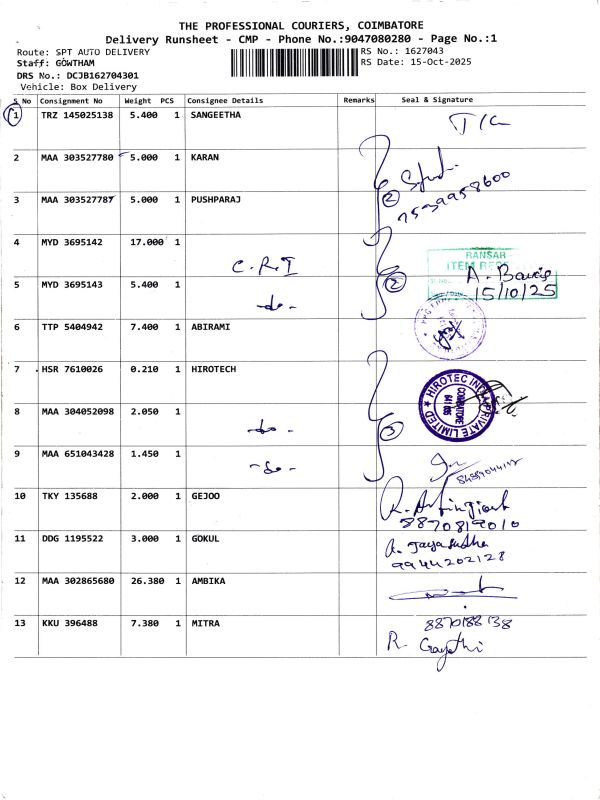 THE PROFESSIONAL COURIERS, COIMBATORE
Delivery Runsheet - CMP - Phone No.:9047080280 - Page No.:1
Route: SPT AUTO DELIVERY RS No.: 1627043
Staff: GOWTHAM RS Date: 15-Oct-2025
DRS No.: DCJB162704301
Vehicle: Box Delivery
S No Consignment No Weight PCS Consignee Details Remarks Seal & Signature
1 TRZ 145025138 5.400 1 SANGEETHA
2 MAA 303527780 5.000 1 KARAN
3 MAA 303527787 5.000 1 PUSHPARAJ 2 7539958600
4 MYD 3695142 17.000 1
C.R.I
RANSAR
5 MYD 3695143 5.400 1 2 A. 
-do- 15/10/25
6 TTP 5404942 7.400 1 ABIRAMI
7 HSR 7610026 0.210 1 HIROTECH
HIROTEC INDIA PRIVATE LIMITED
COIMBATORE
8 MAA 304052098 2.050 1
-do- 3
9 MAA 651043428 1.450 1
-do-
10 TKY 135688 2.000 1 GEJOO
8870819010
11 DDG 1195522 3.000 1 GOKUL
9944202128
12 MAA 302865680 26.380 1 AMBIKA
13 KKU 396488 7.380 1 MITRA 8870188138
R. Gayathri